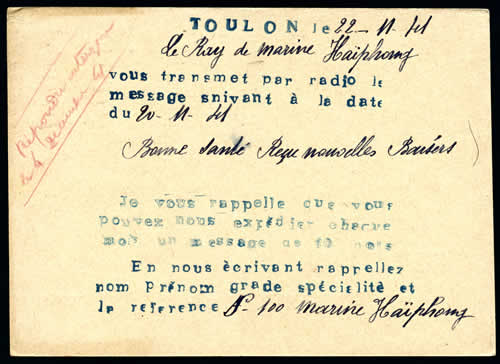 TOULON le 22-11-41
Le Ray de marine Haïphong
vous transmet par radio le
message snivant à la date
du 20-11-41
Bonne santé Reçu nouvelles Baisers
Répondu
le 4 décembre 41
Je vous rappelle que vous
pouvez nous expédier chaque
mois un message de 10 mots
En nous écrivant rappelez
nom prénom grade spécialité et
la reference P-100 marine Haïphong